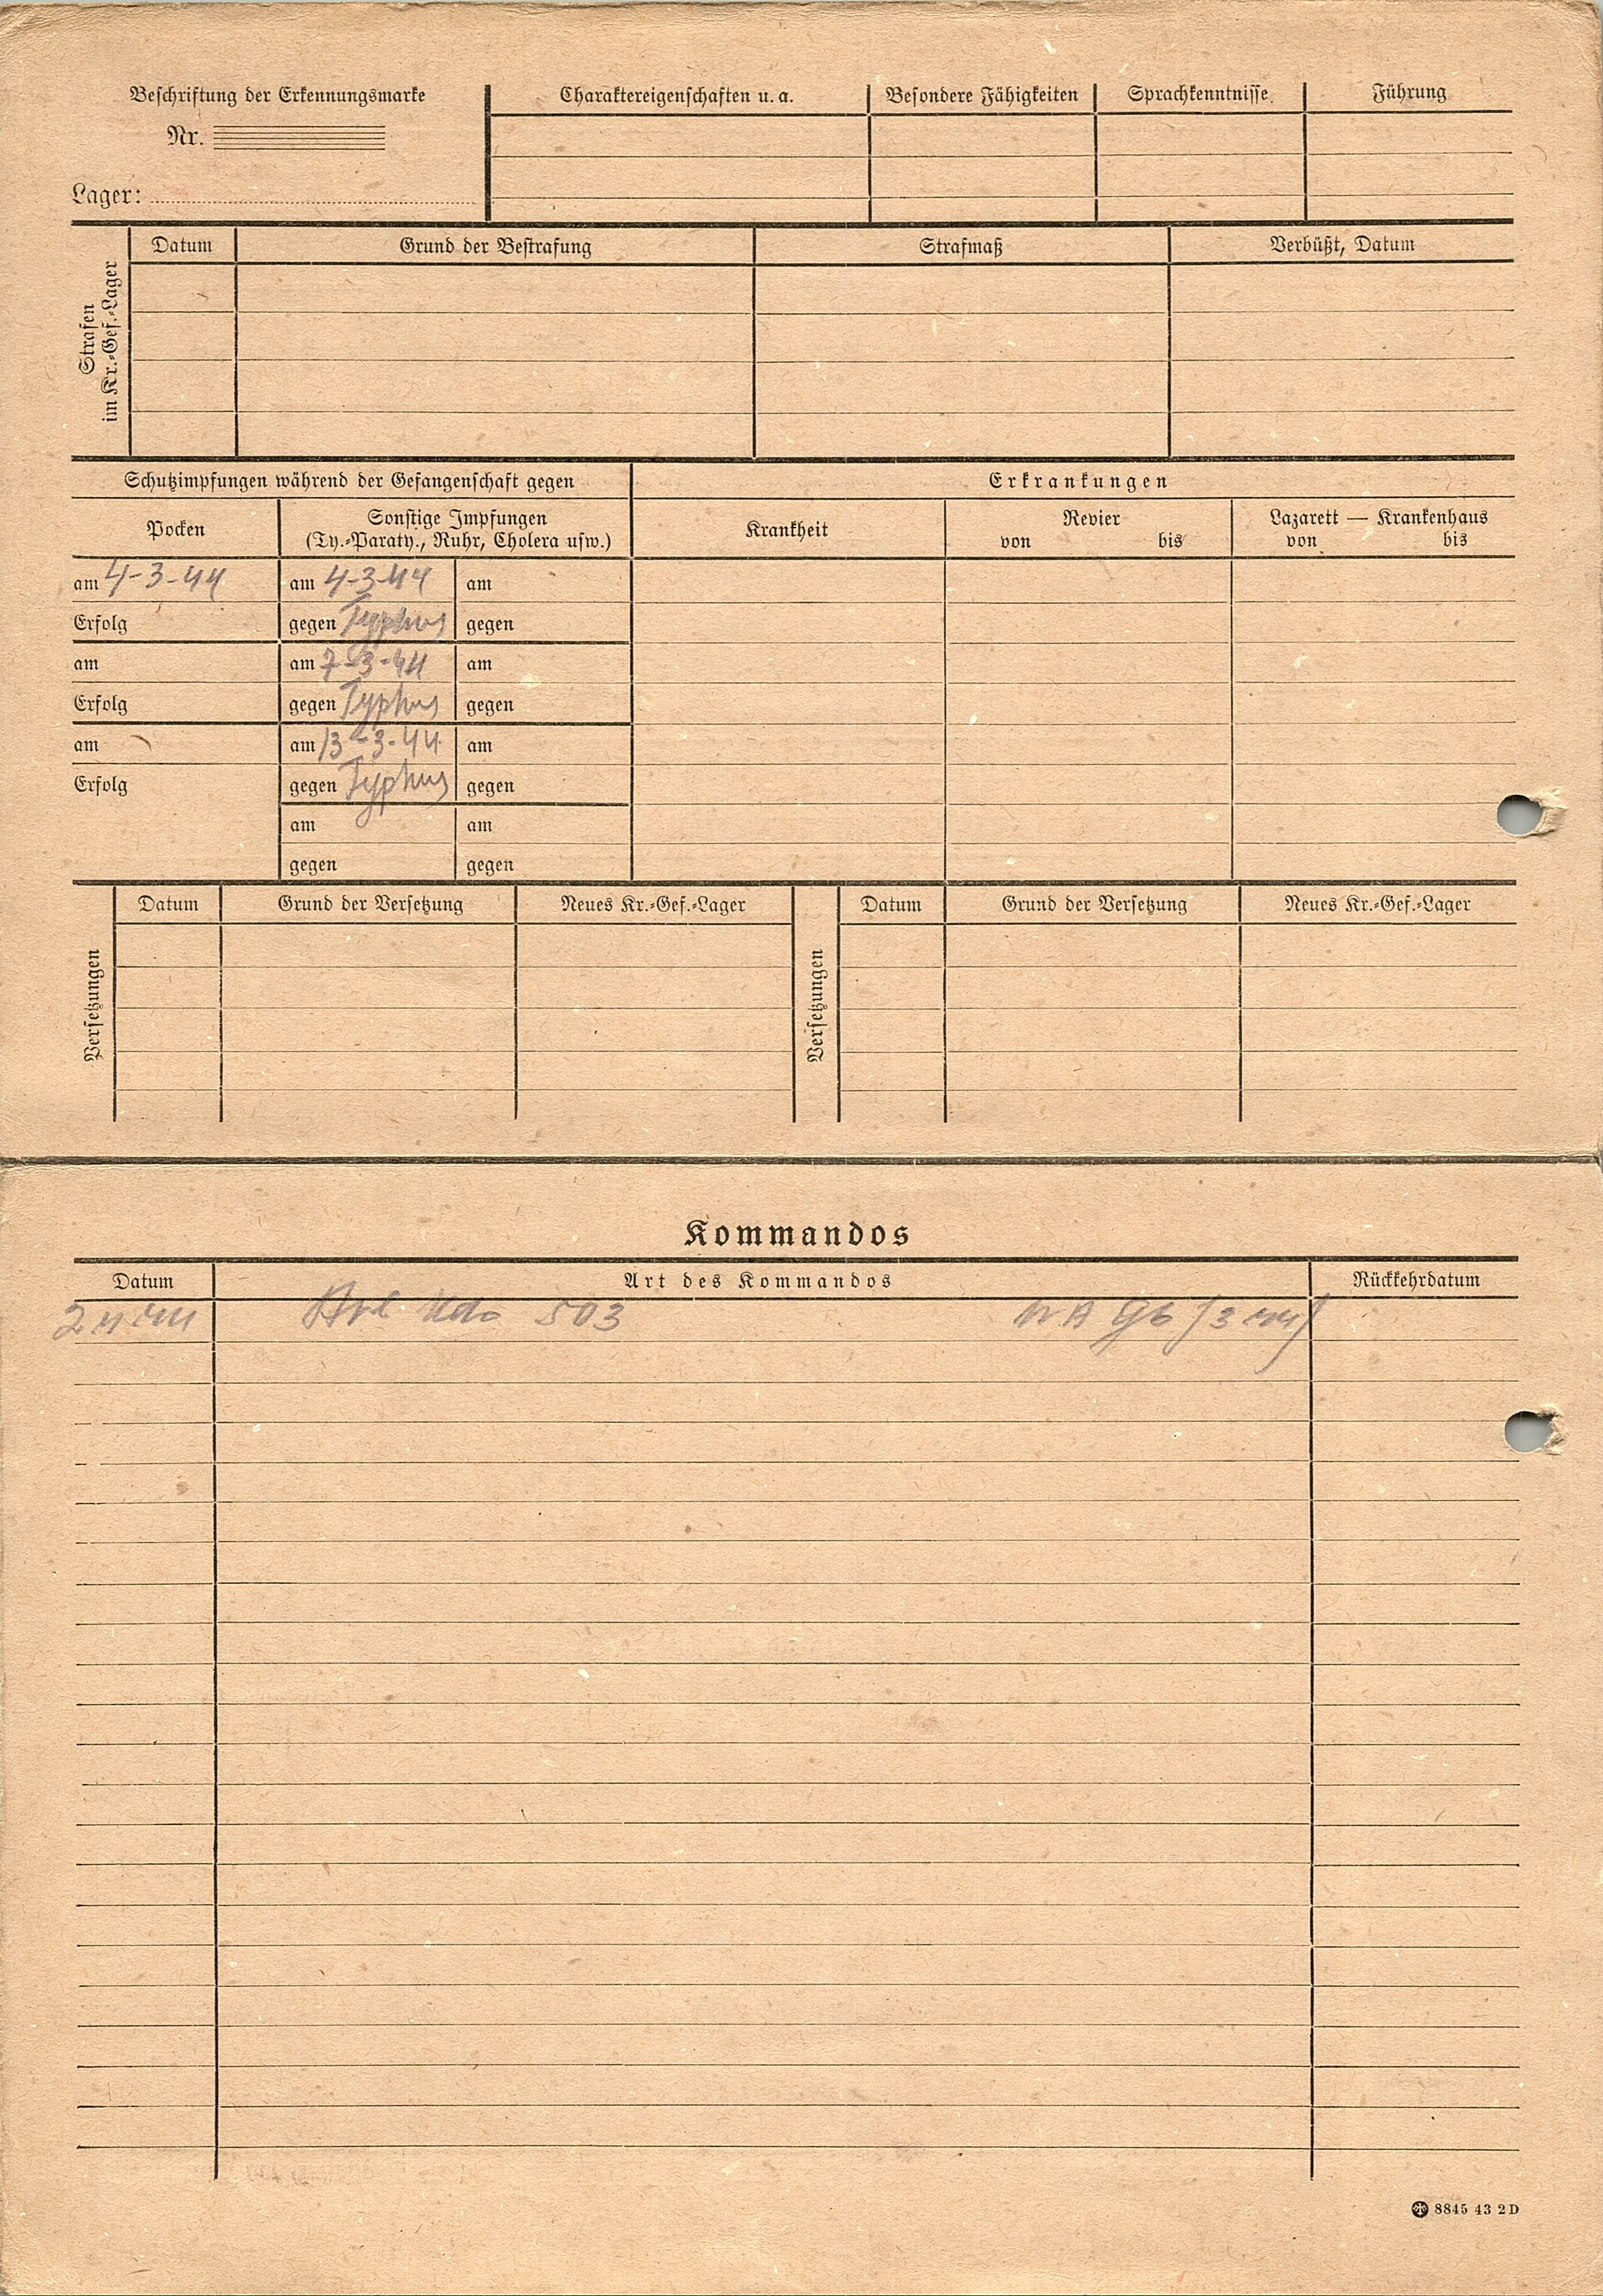 Beschriftung der Erkennungsmarke
Nr.
Lager:
Charaktereigenschaften u. a.
Besondere Fähigkeiten
Sprachkenntnisse
Führung
Strafen
im Kr.-Gef.-Lager
Datum
Grund der Bestrafung
Strafmaß
Verbüßt, Datum
Schutzimpfungen während der Gefangenschaft gegen
Erkrankungen
Pocken
Sonstige Impfungen
(Ty.-Paraty., Ruhr, Cholera usw.)
Krankheit
Revier
von bis
Lazarett — Krankenhaus
von bis
am 4-3-44 am 4-3-44 am
Erfolg gegen Typhus gegen
am am 7-3-44 am
Erfolg gegen Typhus gegen
am am 13-3-44 am
Erfolg gegen Typhus gegen
am am
gegen gegen
Versetzungen
Datum Grund der Versetzung Neues Kr.-Gef.-Lager
Versetzungen
Datum Grund der Versetzung Neues Kr.-Gef.-Lager
Kommandos
Datum Art des Kommandos Rückkehrdatum
Kdo 503
8845 43 2 D